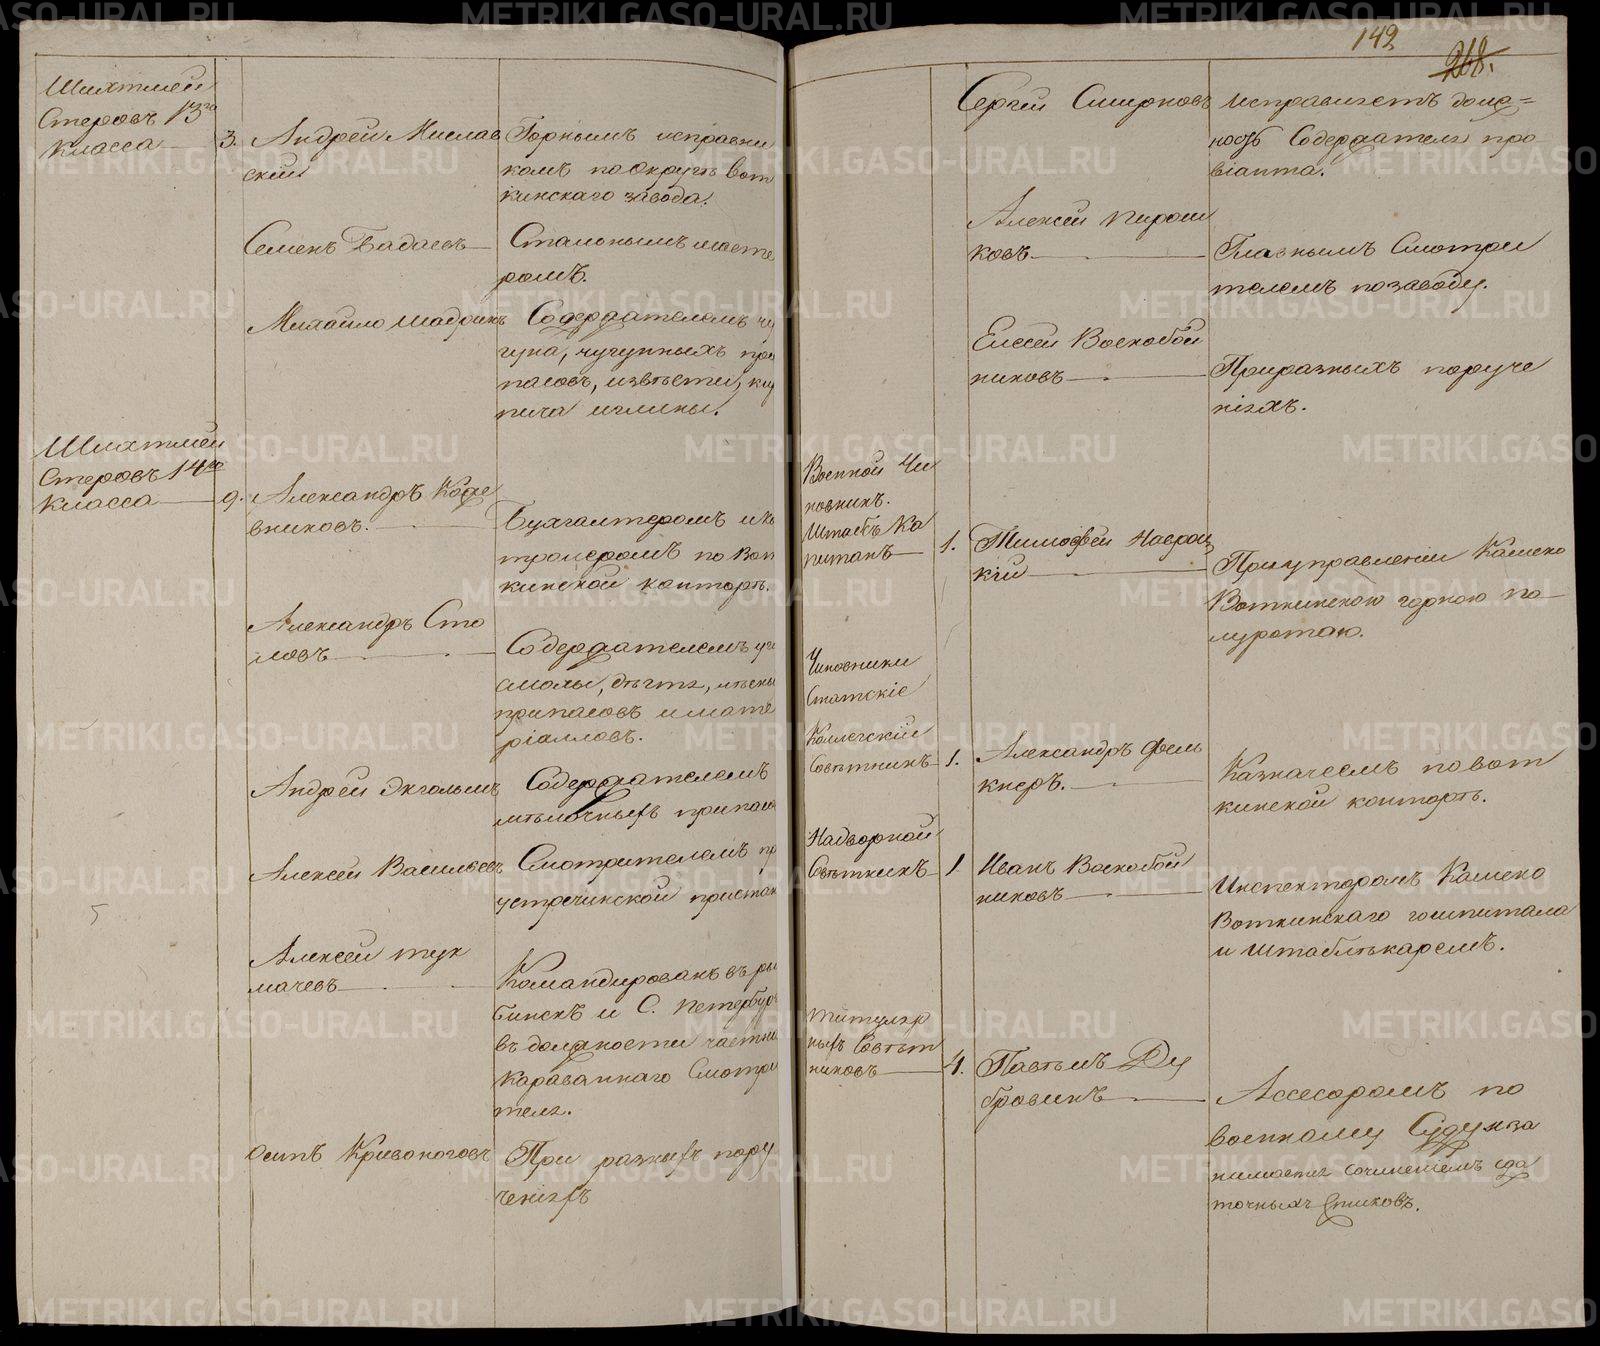 Шихтмей
стеровъ 13го
класса 3. Андрей Мислав
скій
Горнымъ исправни
комъ по округѣ Вот
кинскаго завода.
Семенъ Бадаевъ
Стальнымъ масте
ромъ.
Михайло Шадринъ
Содержателемъ чу
гуна, чугунныхъ при
пасовъ, извѣсти, кир
пича и глины.
Шихтмей
стеровъ 14го
класса 9. Александръ Коже
вниковъ.
Бухгалтеромъ и ко
тролеромъ по Вот
кинской конторѣ.
Александръ Сто
ловъ
Содержателемъ
смолы, дѣгтя,
припасовъ и мате
ріаловъ.
Андрей Экгольмъ
Содержателемъ
мѣлочныхъ припасо
Алексей Васильевъ
Смотрителемъ
устречинской пристан
Алексей Тук
мачевъ
Командированъ въ ры
бинскъ и С. Петербур
въ должности частна
караваннаго Смотри
теля.
Осипъ Кривоноговъ
При разныхъ пору
ченіяхъ
142
268.
Сергей Смирновъ
Исправляетъ долж=
ность Содержателя про
віанта.
Алексей Пирош
ковъ
Главнымъ Смотри
телемъ по заводу.
Елисей Воскобой
никовъ
При разныхъ поруче
ніяхъ.
Военной Чи
новникъ.
Штабсъ Ка
питанъ 1. Тимофей Навроц
кій
При управленіи Камско
Воткинскою горною по-
луротою.
Чиновники
Статскіе
Коллегскій
Совѣтникъ 1. Александръ Фель
кнеръ.
Казначеемъ по Вот
кинской конторѣ.
Надворной
Совѣтникъ 1 Иванъ Воскобой
никовъ
Инспекторомъ Камско
Воткинскаго гошпиталя
и штаблѣкаремъ.
Титуляр
ныхъ Совѣт
никовъ 4. Павелъ Ду
бровинъ
Ассесоромъ по
военному Суду и за
нимается сочиненіемъ сда
точныхъ списковъ.
METRIKI.GASO-URAL.RU